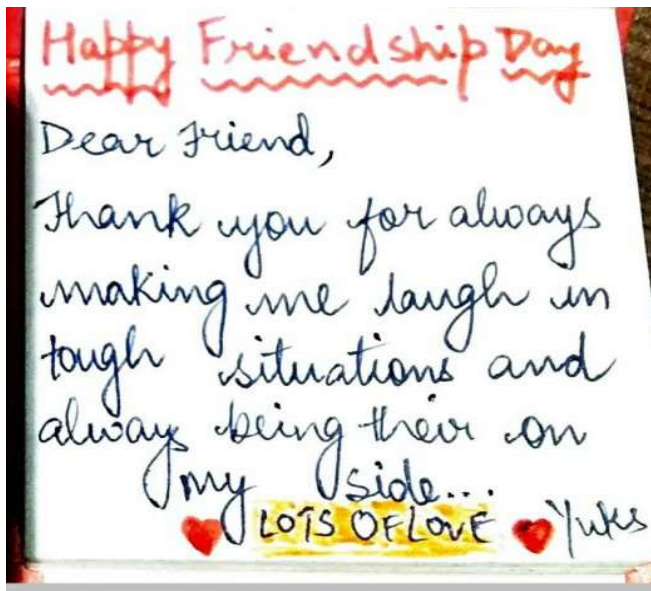 Happy Friendship Day
Dear Friend,
Thank you for always
making me laugh in
tough situations and
always being their on
my side...
LOTS OF LOVE